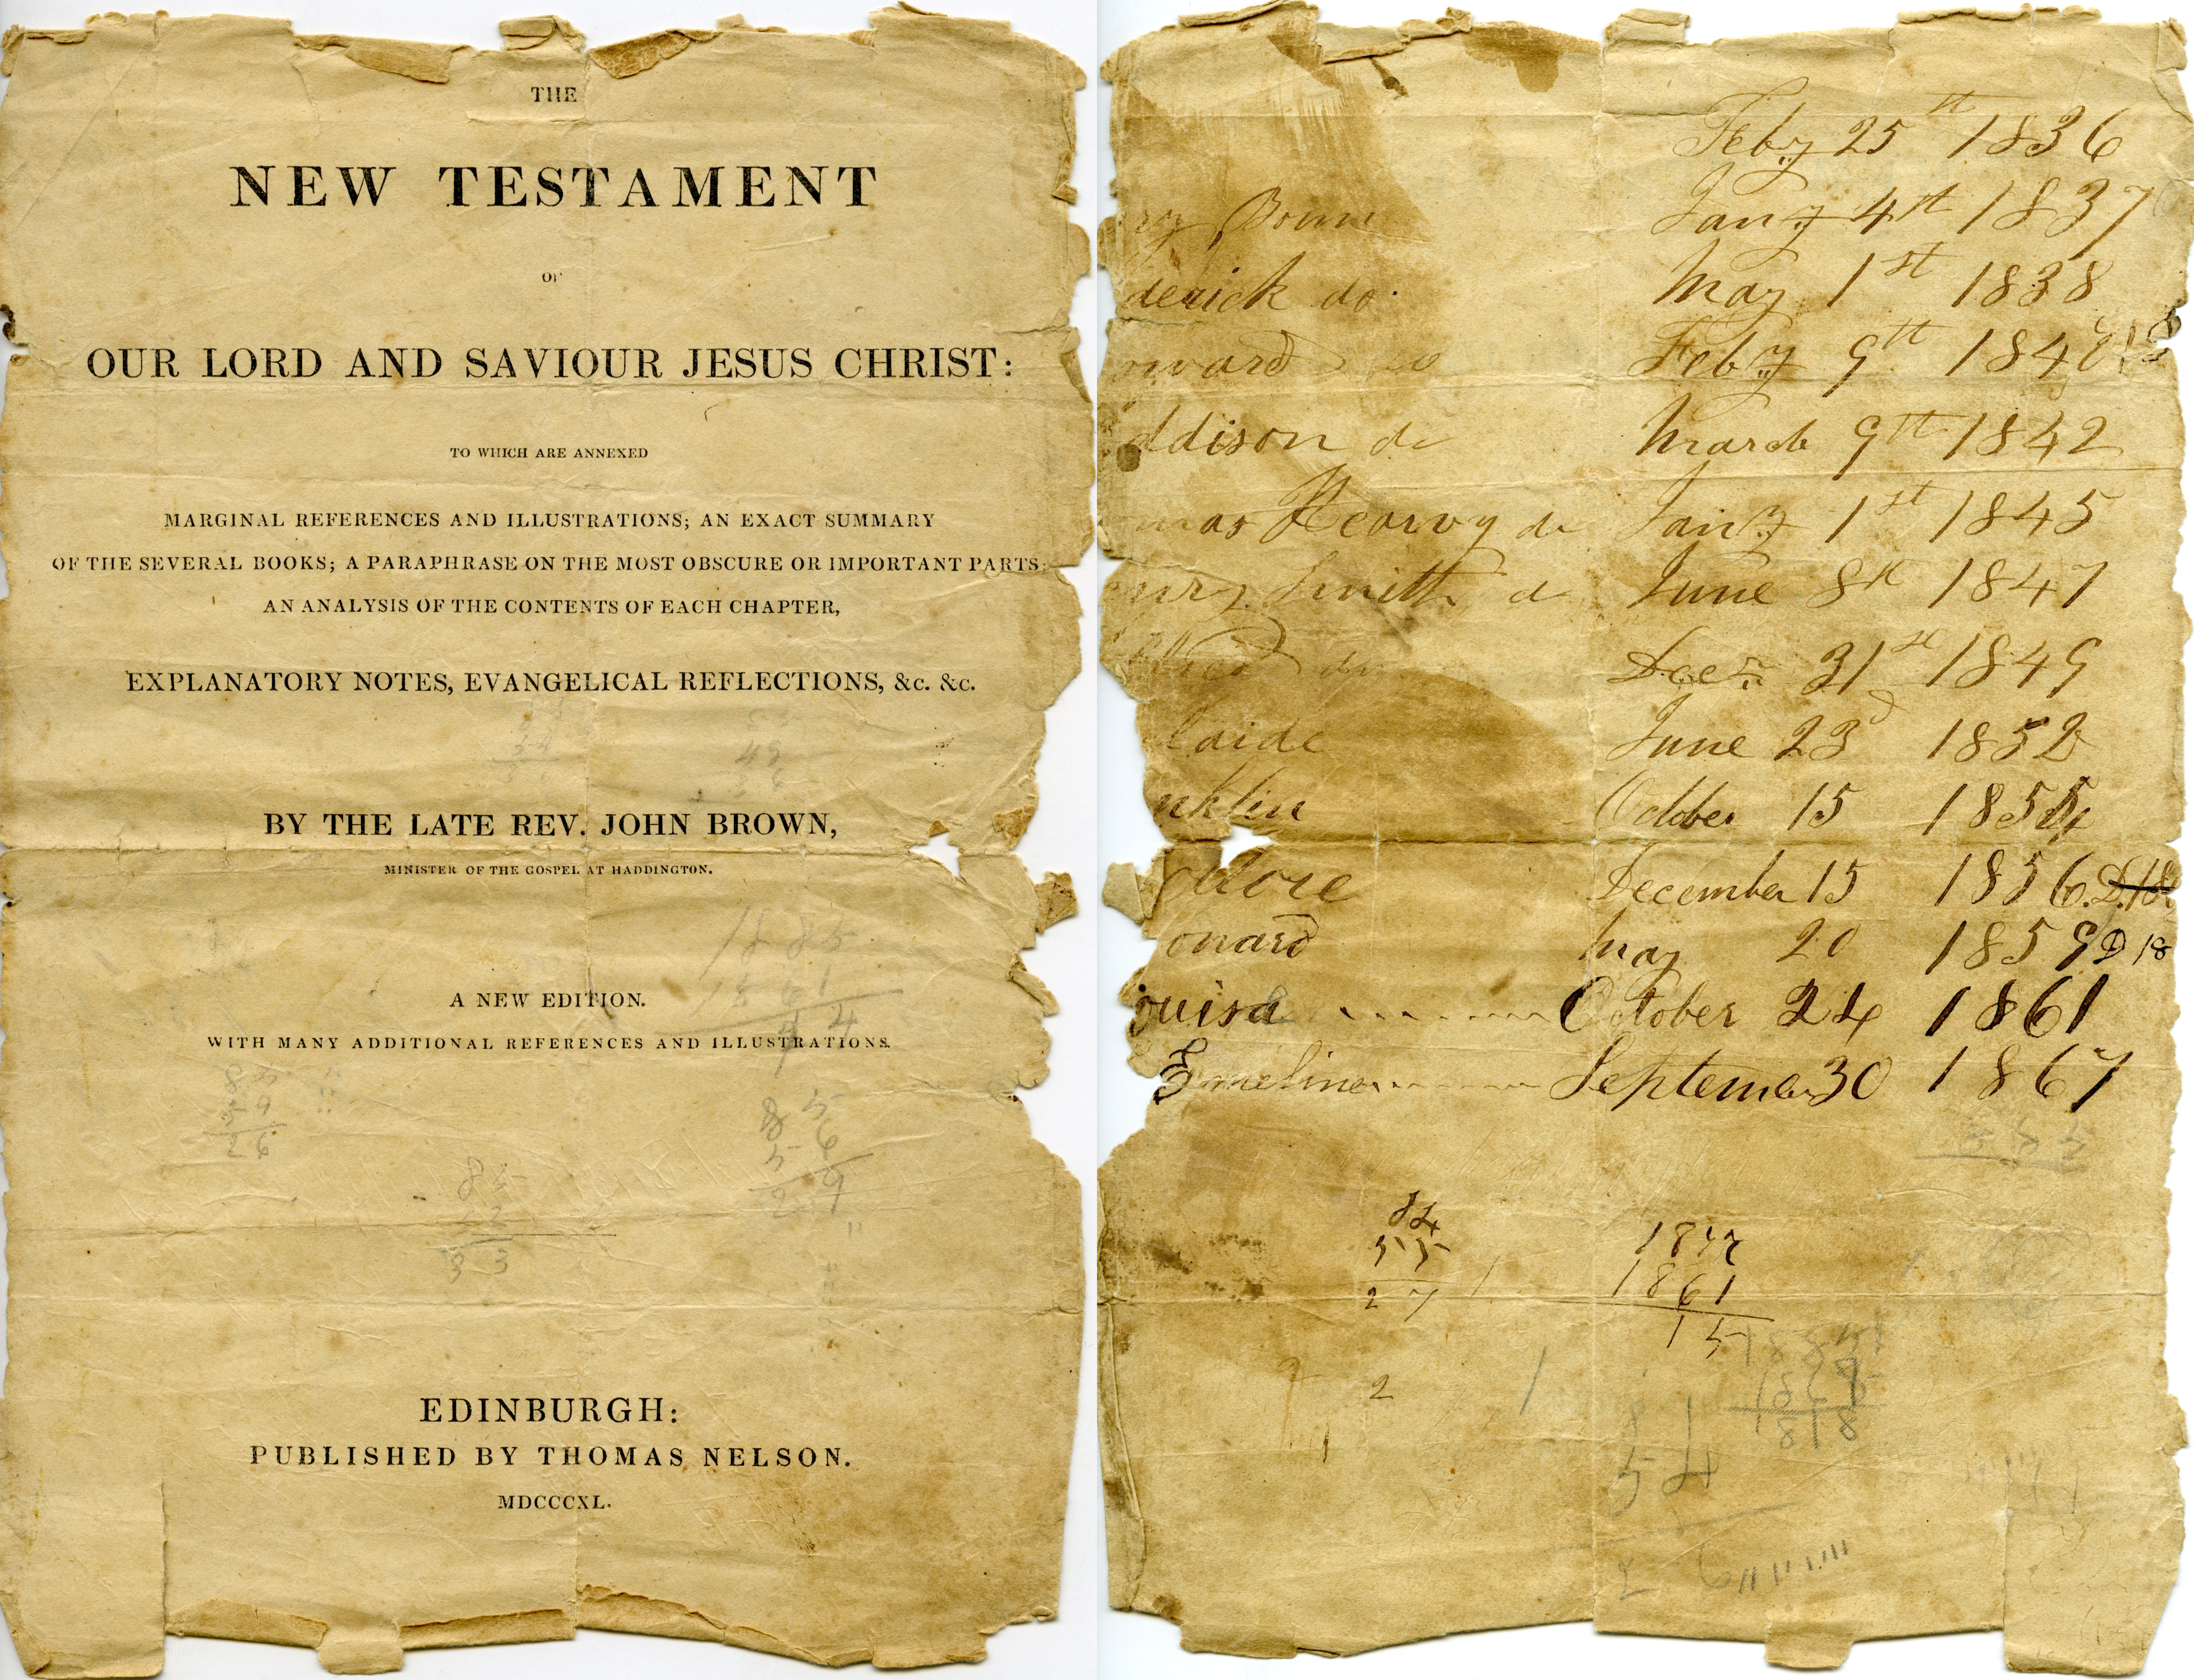 THE
NEW TESTAMENT
OF
OUR LORD AND SAVIOUR JESUS CHRIST:
TO WHICH ARE ANNEXED
MARGINAL REFERENCES AND ILLUSTRATIONS; AN EXACT SUMMARY
OF THE SEVERAL BOOKS; A PARAPHRASE ON THE MOST OBSCURE OR IMPORTANT PARTS;
AN ANALYSIS OF THE CONTENTS OF EACH CHAPTER,
EXPLANATORY NOTES, EVANGELICAL REFLECTIONS, &c. &c.
BY THE LATE REV. JOHN BROWN,
MINISTER OF THE GOSPEL AT HADDINGTON.
A NEW EDITION.
WITH MANY ADDITIONAL REFERENCES AND ILLUSTRATIONS.
1885
1861
85
56
29
85
33
26
EDINBURGH:
PUBLISHED BY THOMAS NELSON.
MDCCCXL.
Feby 25st 1836
Jany 4st 1837
derick do. May 1st 1838
ward Feby 9th 184
ddison do March 9th 1842
mas Hearvy do Jany 1st 1845
Smith d June 8th 1847
31st 1849
laide June 23d 1852
nklin October 15 185
odore December 15 1856.
onard May 20 1859 D 18
ouisa October 24 1861
Emeline 30 1867
84
55
27
1861
15
2
1818
54